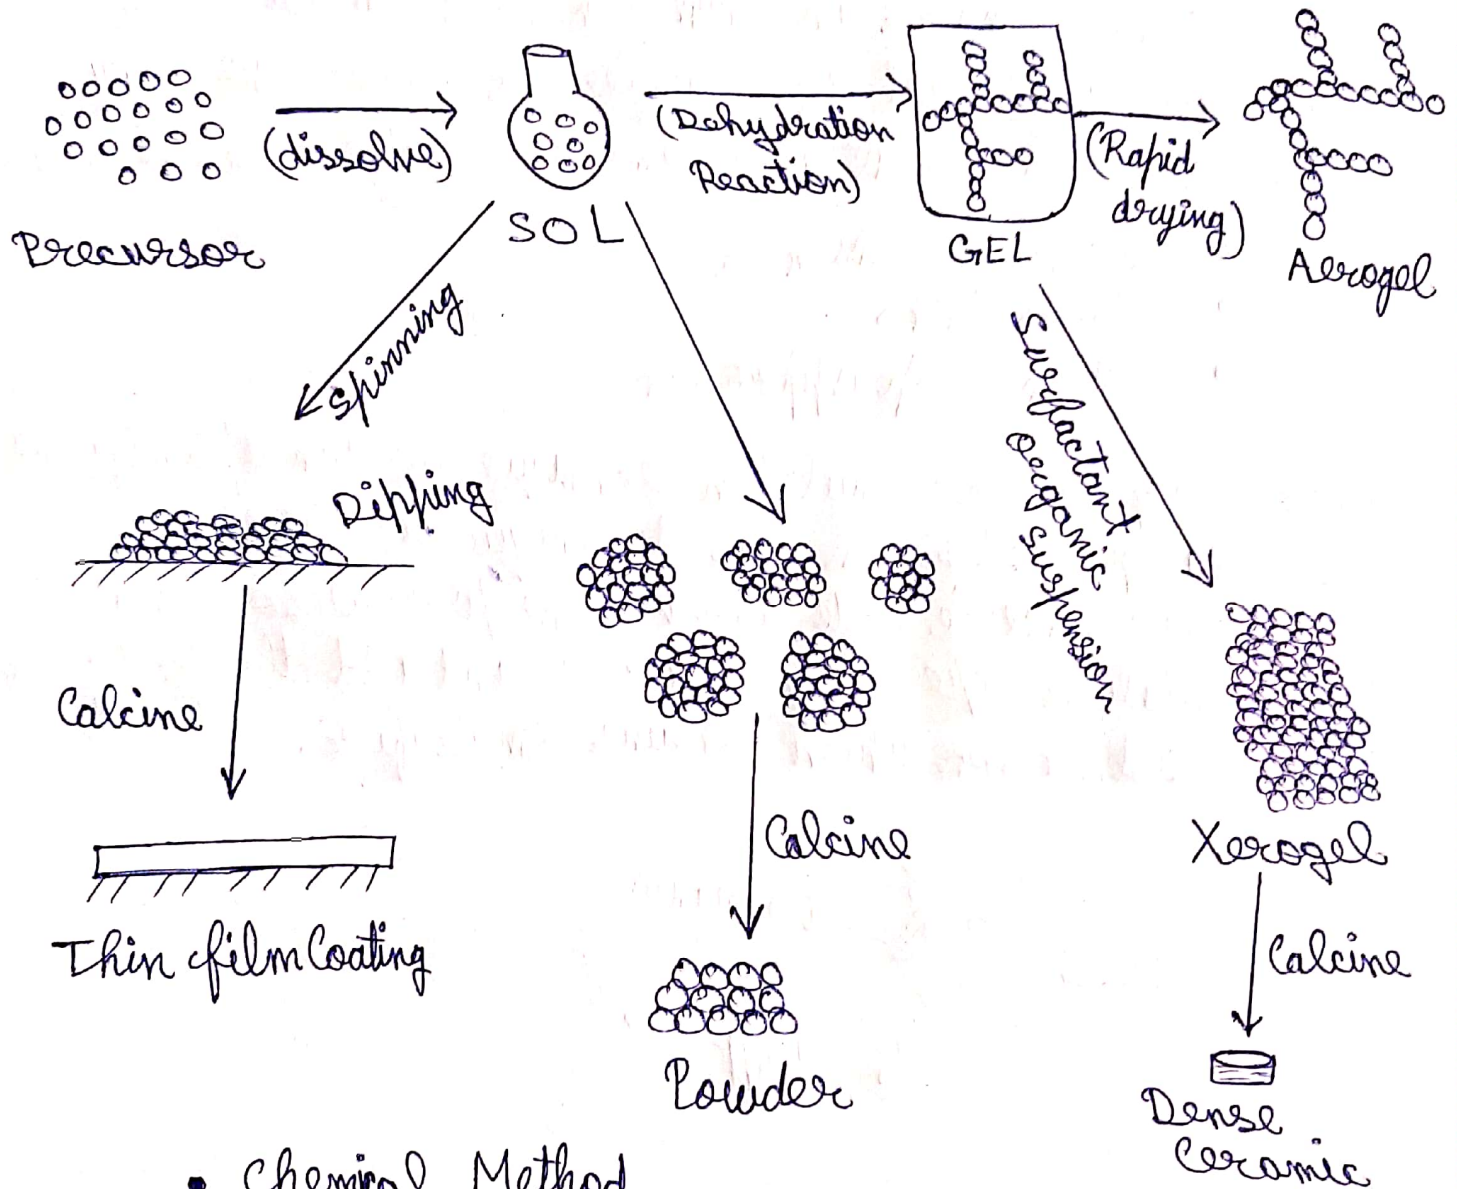 Precursor
(dissolve)
SOL
(Dehydration
Reaction)
GEL
(Rapid
drying)
Aerogel
Spinning
Dipping
Surfactant
organic
suspension
Calcine
Thin film Coating
Calcine
Powder
Xerogel
Calcine
Dense
Ceramic
• Chemical Method